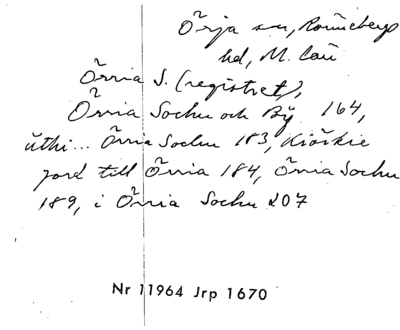 Õrja sn, Rönnebergs
hd, M. län
Õrria S. (registret),
Õrria Sochn och Bÿ 164,
uthi... Õrria Sochn 183, Kiörkie
jord till Õrria 184, Õrria Sochn
189, i Õrria Sochn 207
Nr 11964 Jrp 1670